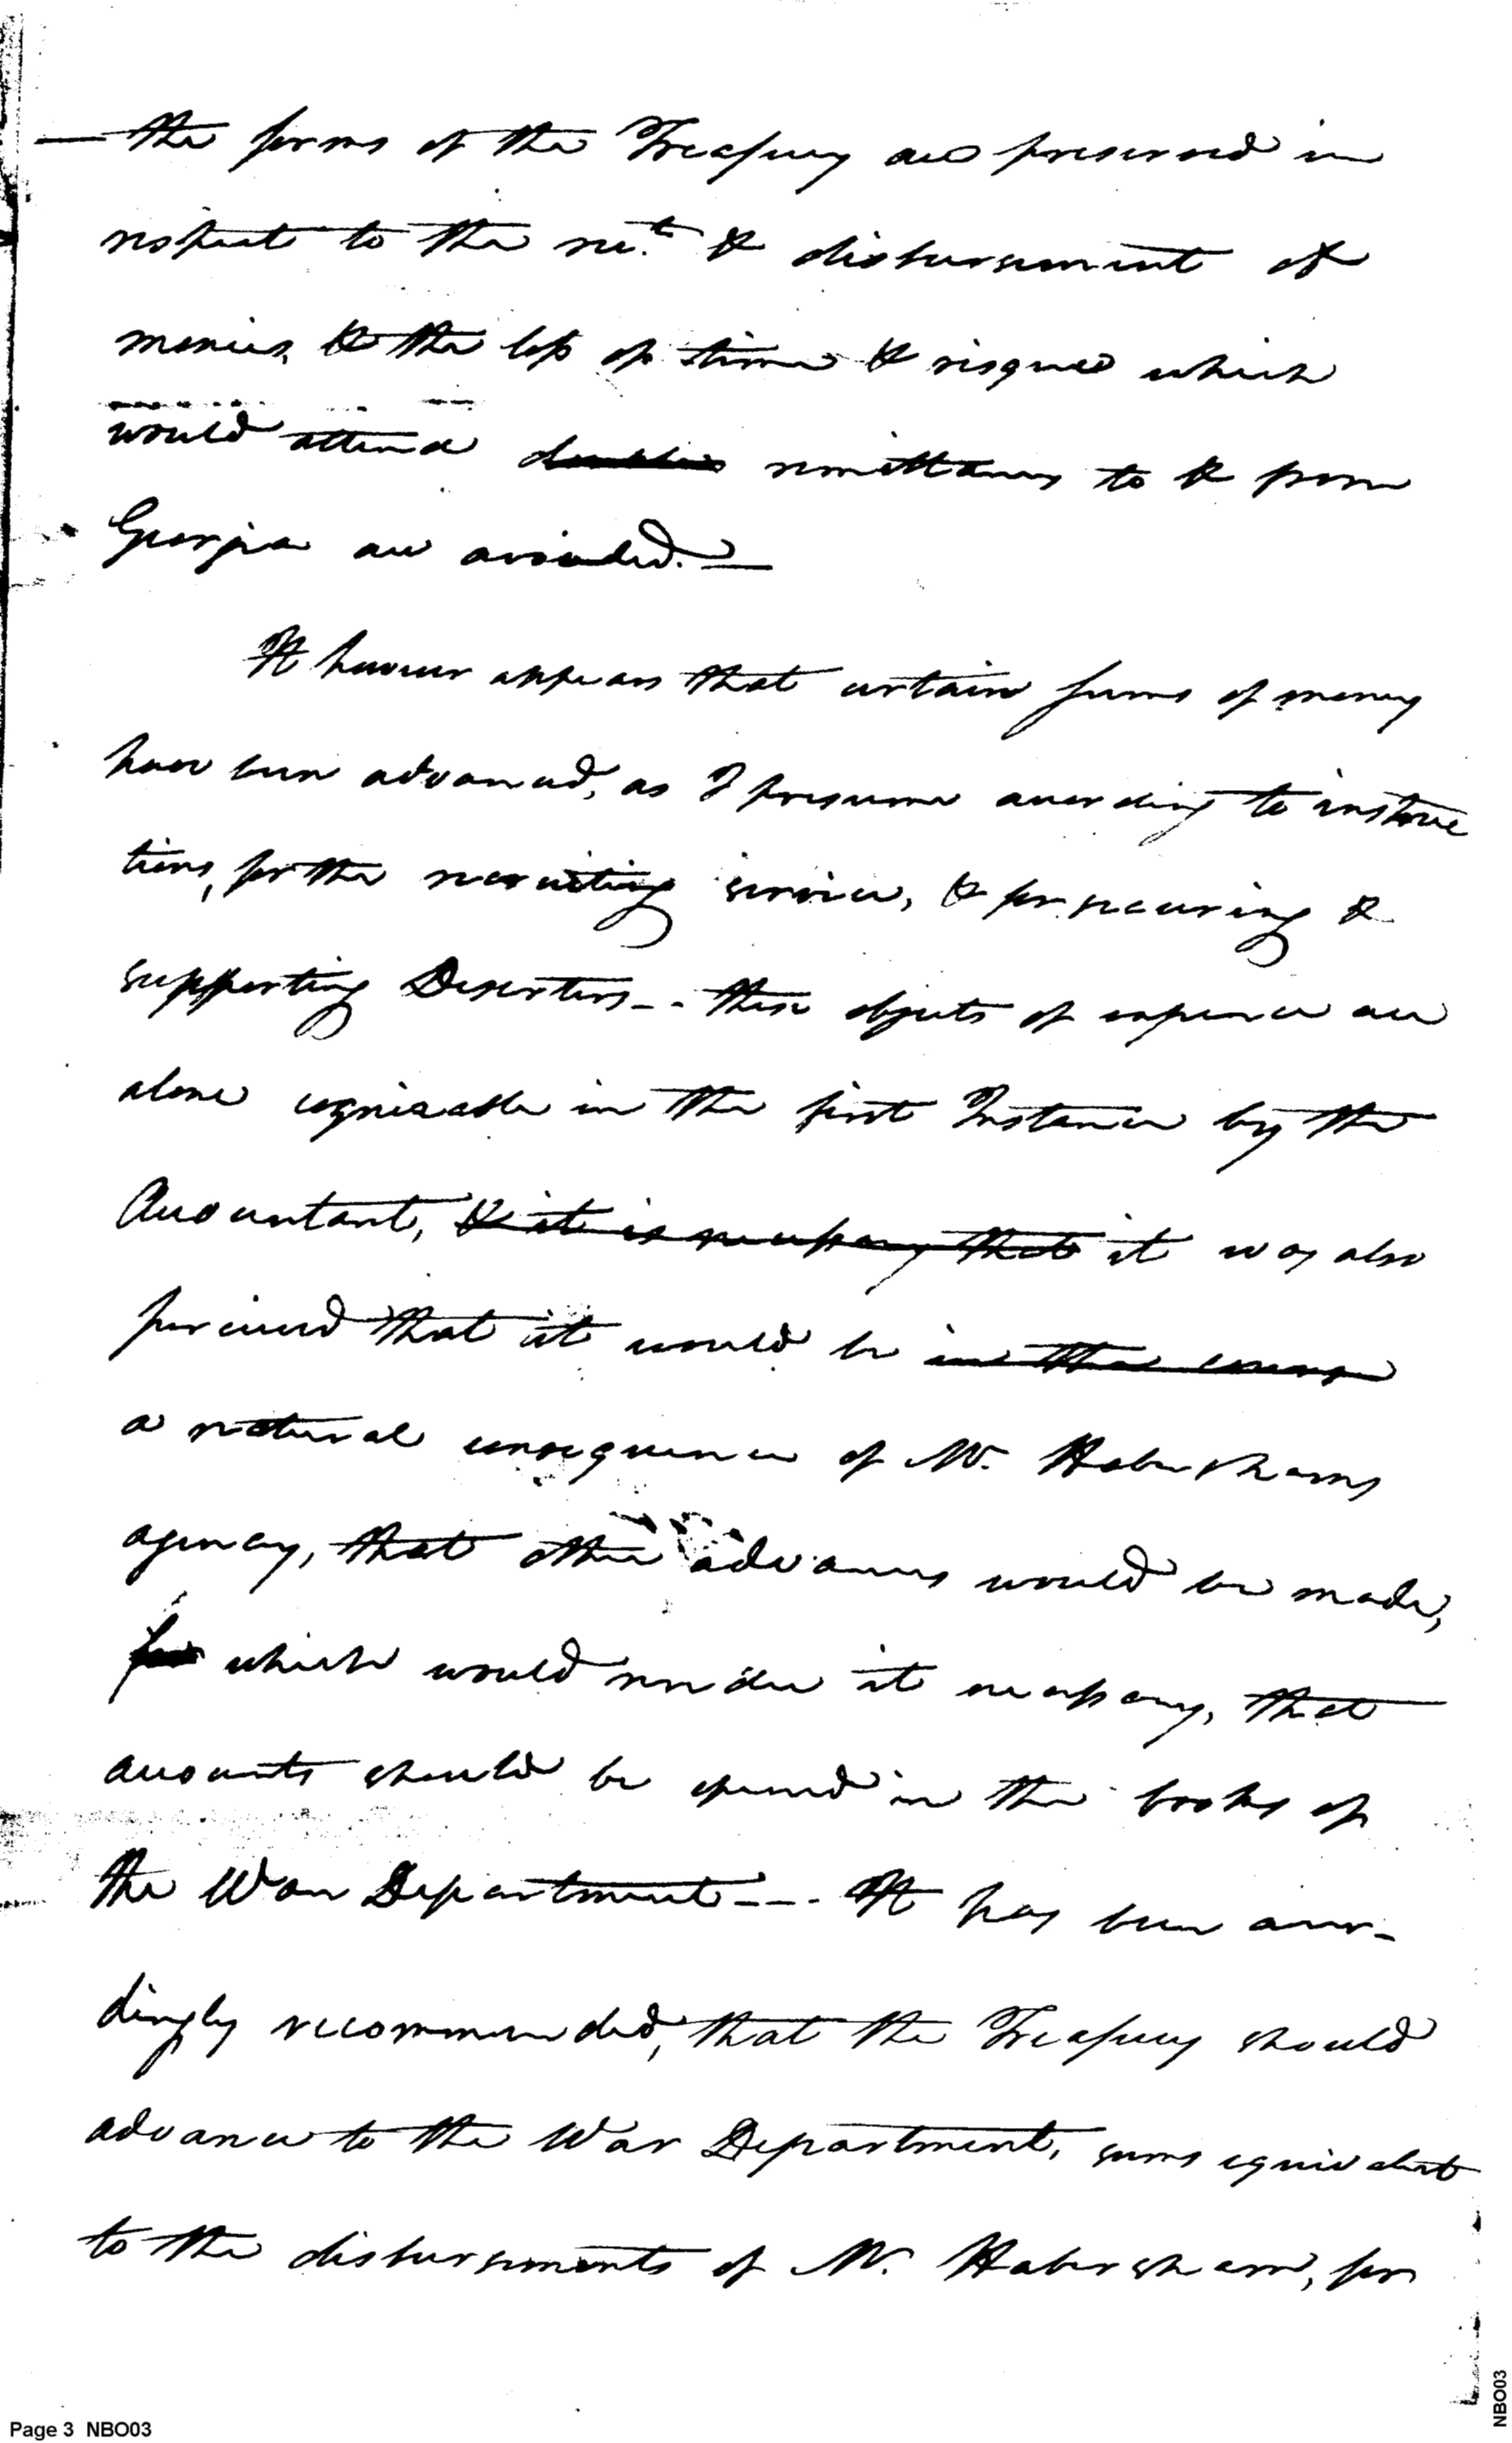 — the forms of the Treasury are preserved in
respect to the rect. & disbursement of
monies, & the loss of time & risques which
would attend double remittances to & from
Georgia are avoided. —
It however appears that certain sums of money
have been advanced, as I presume according to instruc
tions, for the recruiting service, & for securing &
supporting Deserters -- these objects of expence are
alone cognizable in the first Instance by the
Accountant, & it is necessary that it was also
perceived that it would be in the course
a natural consequence of Mr. Habershams
agency, that other advances would be made,
for which would render it necessary, that
accounts should be opened in the books of
the War Department --- It has been accor-
dingly recommended, that the Treasury should
advance to the War Department, sums equivalent
to the disbursements of Mr. Habersham, for
Page 3 NBO03
NBO03